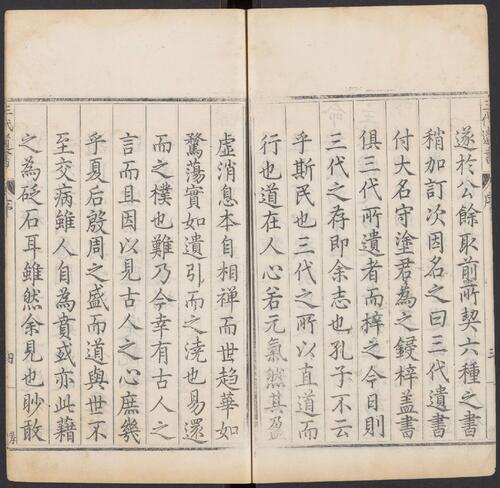 遂於公餘取前所契六種之書
稍加訂次因名之曰三代遺書
付大名守塗君為之鋟梓盖書
俱三代所遺者而梓之今日則
三代之存即余志也孔子不云
乎斯民也三代之所以直道而
行也道在人心若元氣然其盈
虛消息本自相禪而世趋華如
騖蕩實如遺引而之澆也易還
而之樸也難乃今幸有古人之
言而且因以見古人之心庶幾
乎夏后殷周之盛而道與世不
至交病雖人自為賁或亦此藉
之為砭石耳雖然余見也眇敢
三代遺書
序
四